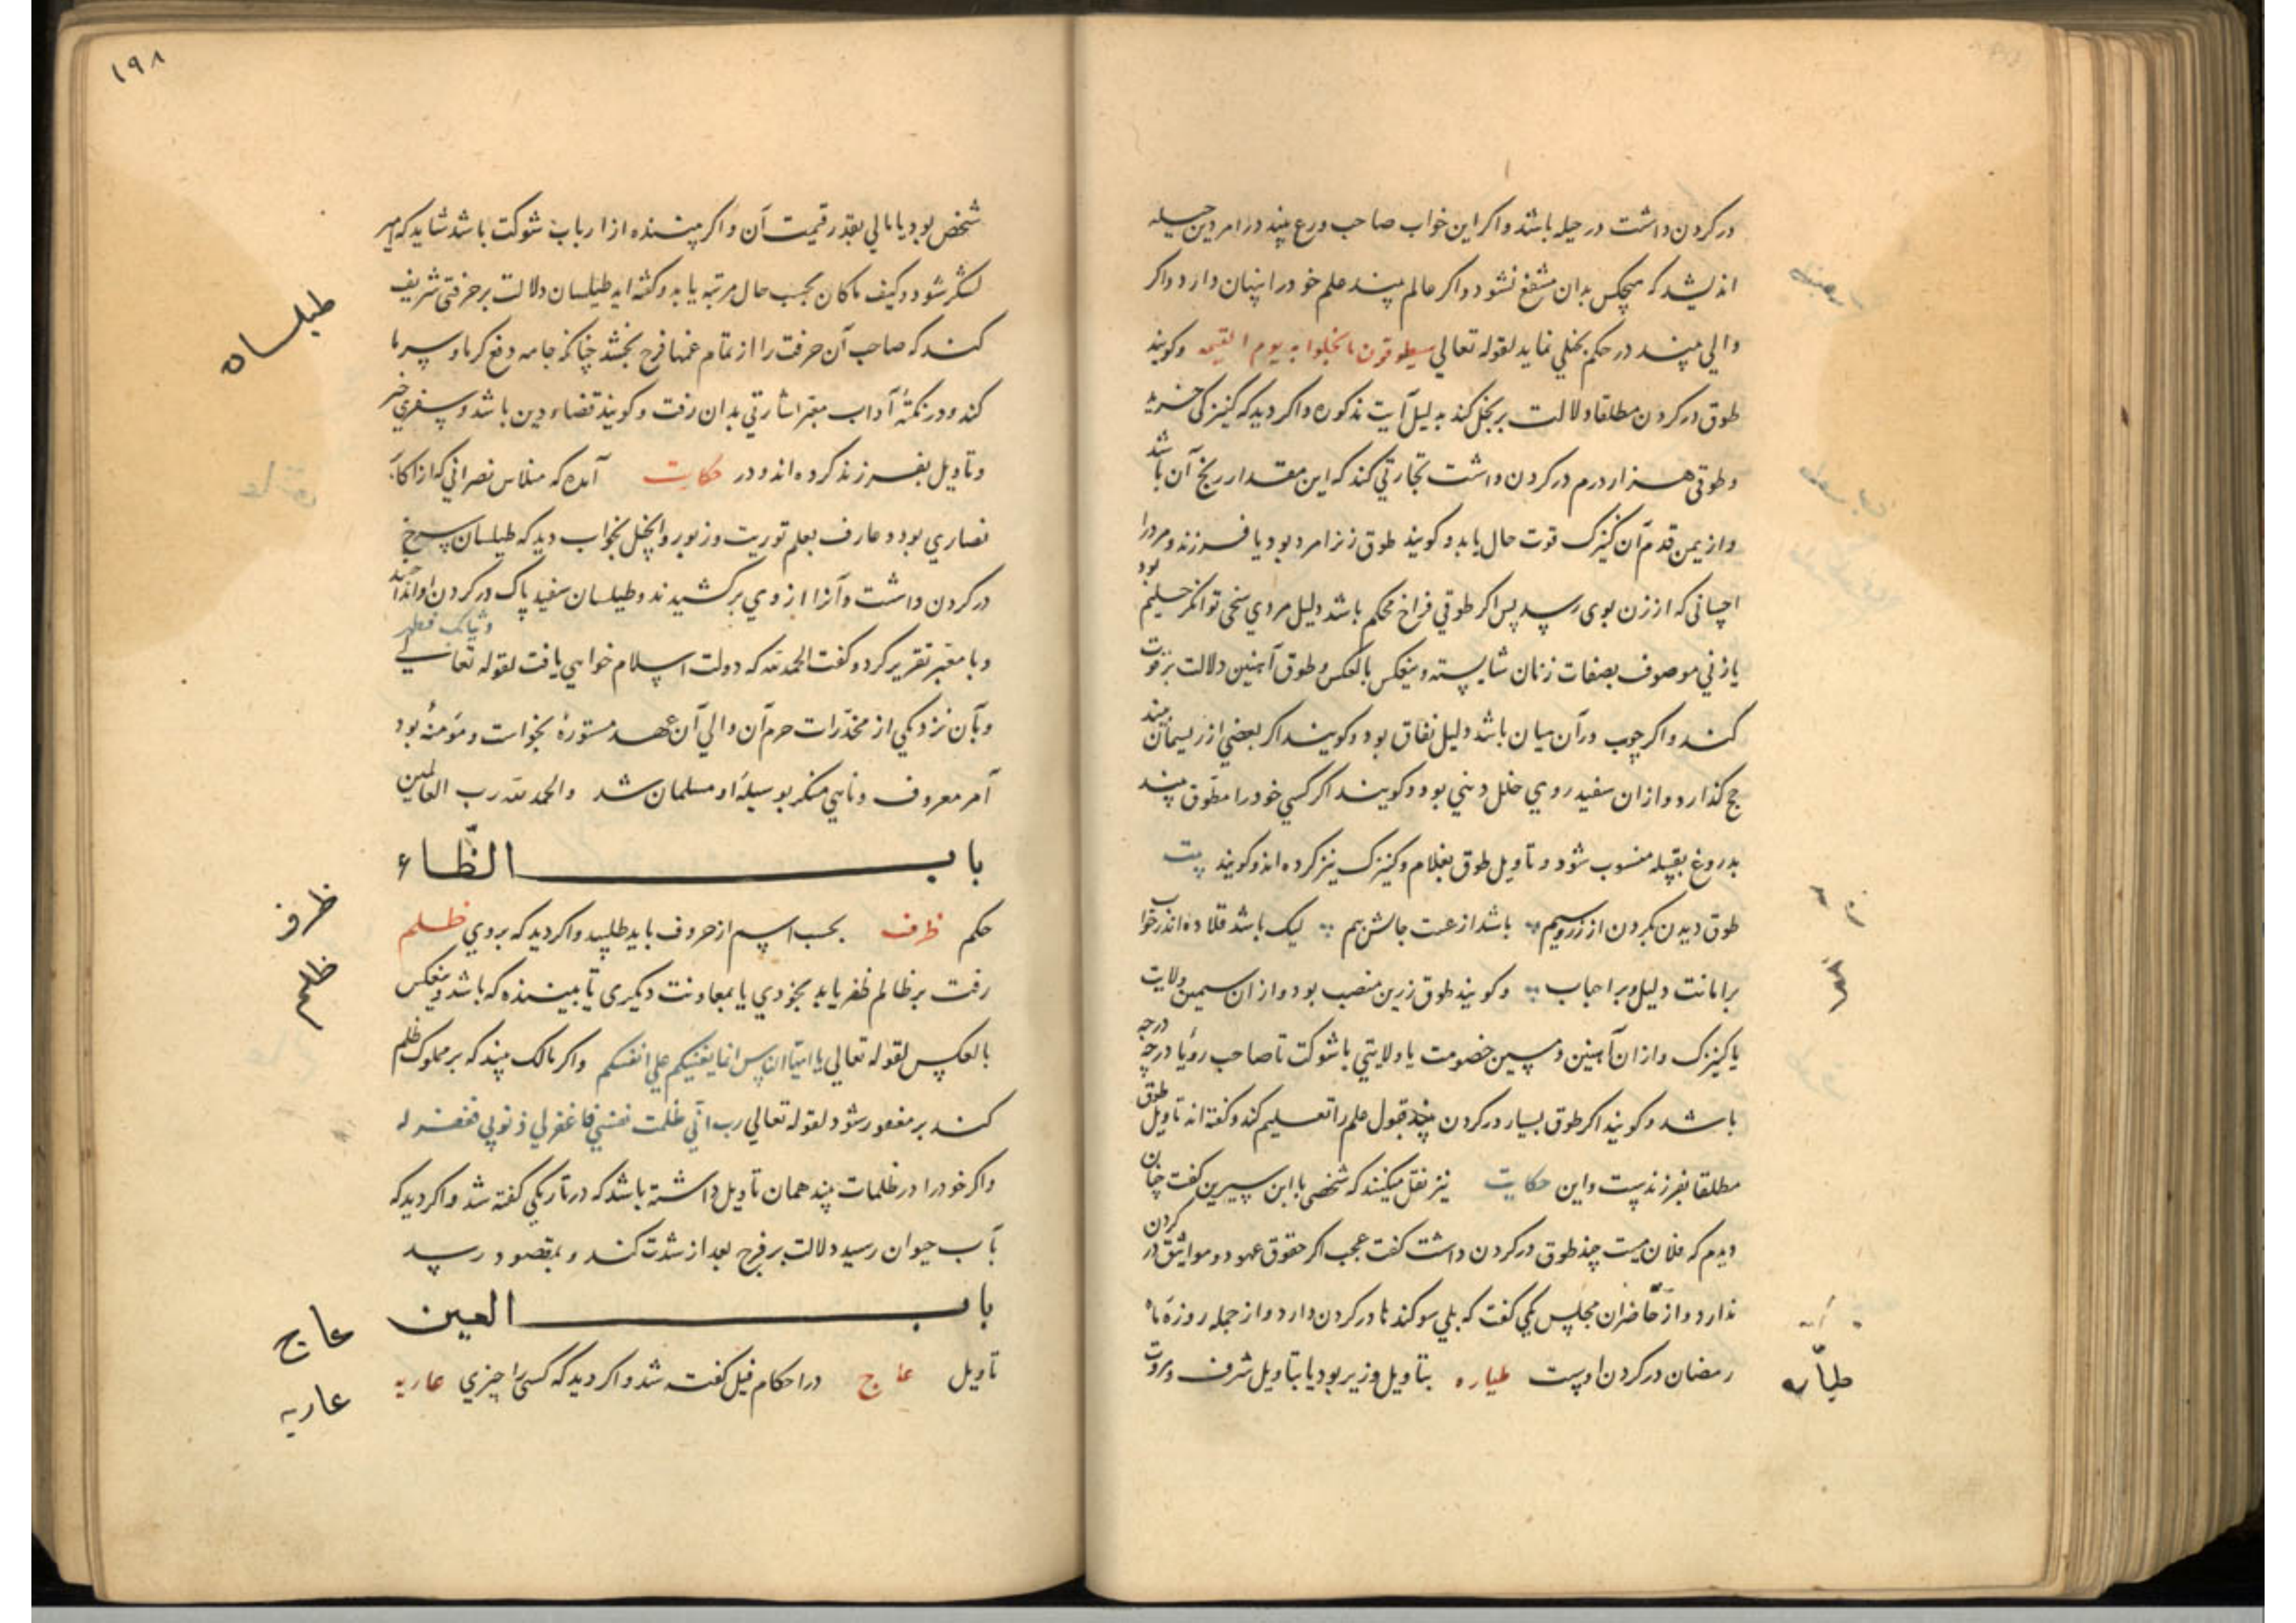 در کردن داشت در حیله باشد و اکر این خواب صاحب ورع بیند در امر دین حیله
اندیشد که هیچکس بدان منتفع نشود و اکر عالم بیند علم خود را پنهان دارد و اکر
والی بیند در حکم بخیلی نماید لقوله تعالی سیطوقون ما بخلوا به یوم القیمه و کویند
طوق در کردن مطلقا دلالت بر بخل کند بدلیل آیت مذکوره و اکر دید که کنیزکی خرید
و طوقی هزار درم در کردن داشت تجارتی کند که این مقدار ربح آن باشد
و از یمن قدم آن کنیزک قوت حال یابد و کویند طوق زنرا مرد بود یا فرزند و مردرا
احسانی که از زن بوی رسد پس اکر طوقی فراخ محکم باشد دلیل مردی سخی توانکر حلیم بود
یا زنی موصوف بصفات زنان شایسته و ینعکس بالعکس و طوق آهنین دلالت بر قوت
کند و اکر چوب در آن میان باشد دلیل نفاق بود و کویند اکر بعضی از ریسمان بیند
حج کذارد و از ان سفید روی خلل دینی بود و کویند اکر کسی خود را مطوق بیند
بدروغ بقبیله منسوب شود و تاویل طوق بغلام و کنیزک نیز کرده اند و کویند بیت
طوق دیدن بکردن از زر و سیم باشد از عت جالش بیم لیک باشد قلاده اندر خواب
بر امانت دلیل و بر احباب و کویند طوق زرین منصب بود و از ان سیمین ولایت
یا کنیزک و از ان آهنین و مسین خصومت یا ولایتی با شوکت تا صاحب رؤیا در چه درجه
باشد و کویند اکر طوق بسیار در کردن بیند قبول علم را تعلیم کند و کفته اند تاویل طوق
مطلقا بفرزندست و این حکایت نیز نقل میکنند که شخصی با ابن سیرین کفت چنان
دیدم که فلان میت چند طوق در کردن داشت کفت عجب اکر حقوق عهود و مواثیق در کردن
ندارد و از حاضران مجلس یکی کفت که بلی سوکندها در کردن دارد و از جمله روزه ماه
رمضان در کردن اوست طیاره بتاویل وزیر بود یا بتاویل شرف و مروت
طیاره
۱۹۸
شخص بود یا مالی بقدر قیمت آن و اکر بیننده از ارباب شوکت باشد شاید که امیر
لشکر شود و کیف ما کان بحسب حال مرتبه یابد و کفته اند طیلسان دلالت بر حرفتی شریف
کند که صاحب آن حرفت را از تمام غمها فرح بخشد چنانکه جامه دفع کرما و سرما
کند و در نکتهٔ آداب معبر اشارتی بدان رفت و کویند قضاء دین باشد و سفری خیر
و تاویل بفرزند کرده اند و در حکایت آمده که میلاس نصرانی که از اکابر
نصاری بود و عارف بعلم توریت و زبور و انجیل بخواب دید که طیلسان سرخ
در کردن داشت و آنرا از وی برکشیدند و طیلسان سفید پاک در کردن او انداختند
و با معبر تقریر کرد و کفت الحمد لله که دولت اسلام خواهی یافت لقوله تعالی وثیابک فطهر
و بآن نزدیکی از مخدرات حرم آن والی آن عهد مستورهٔ بخواست و مومنهٔ بود
آمر معروف و ناهی منکر بوسیلهٔ او مسلمان شد والحمد لله رب العالمین
طیلسان
باب الظاء
حکم ظرف بحسب اسم از حروف باید طلبید و اکر دید که بر وی ظلم
رفت بر ظالم ظفر یابد بخودی یا بمعاونت دیکری تا بیننده که باشد و ینعکس
بالعکس لقوله تعالی یا ایها الناس انما بغیکم علی انفسکم و اکر مالک بیند که بر مملوک ظلم
کند بر مغفور شود لقوله تعالی رب انی ظلمت نفسی فاغفر لی ذنوبی فغفر له
و اکر خود را در ظلمات بیند همان تاویل داشته باشد که در تاریکی کفته شد و اکر دید که
بآب حیوان رسید دلالت بر فرج بعد از شدت کند و بمقصود رسد
ظرف
ظلم
باب العین
تاویل عاج در احکام فیل کفته شد و اکر دید که کسی را چیزی عاریه
عاج
عاریه